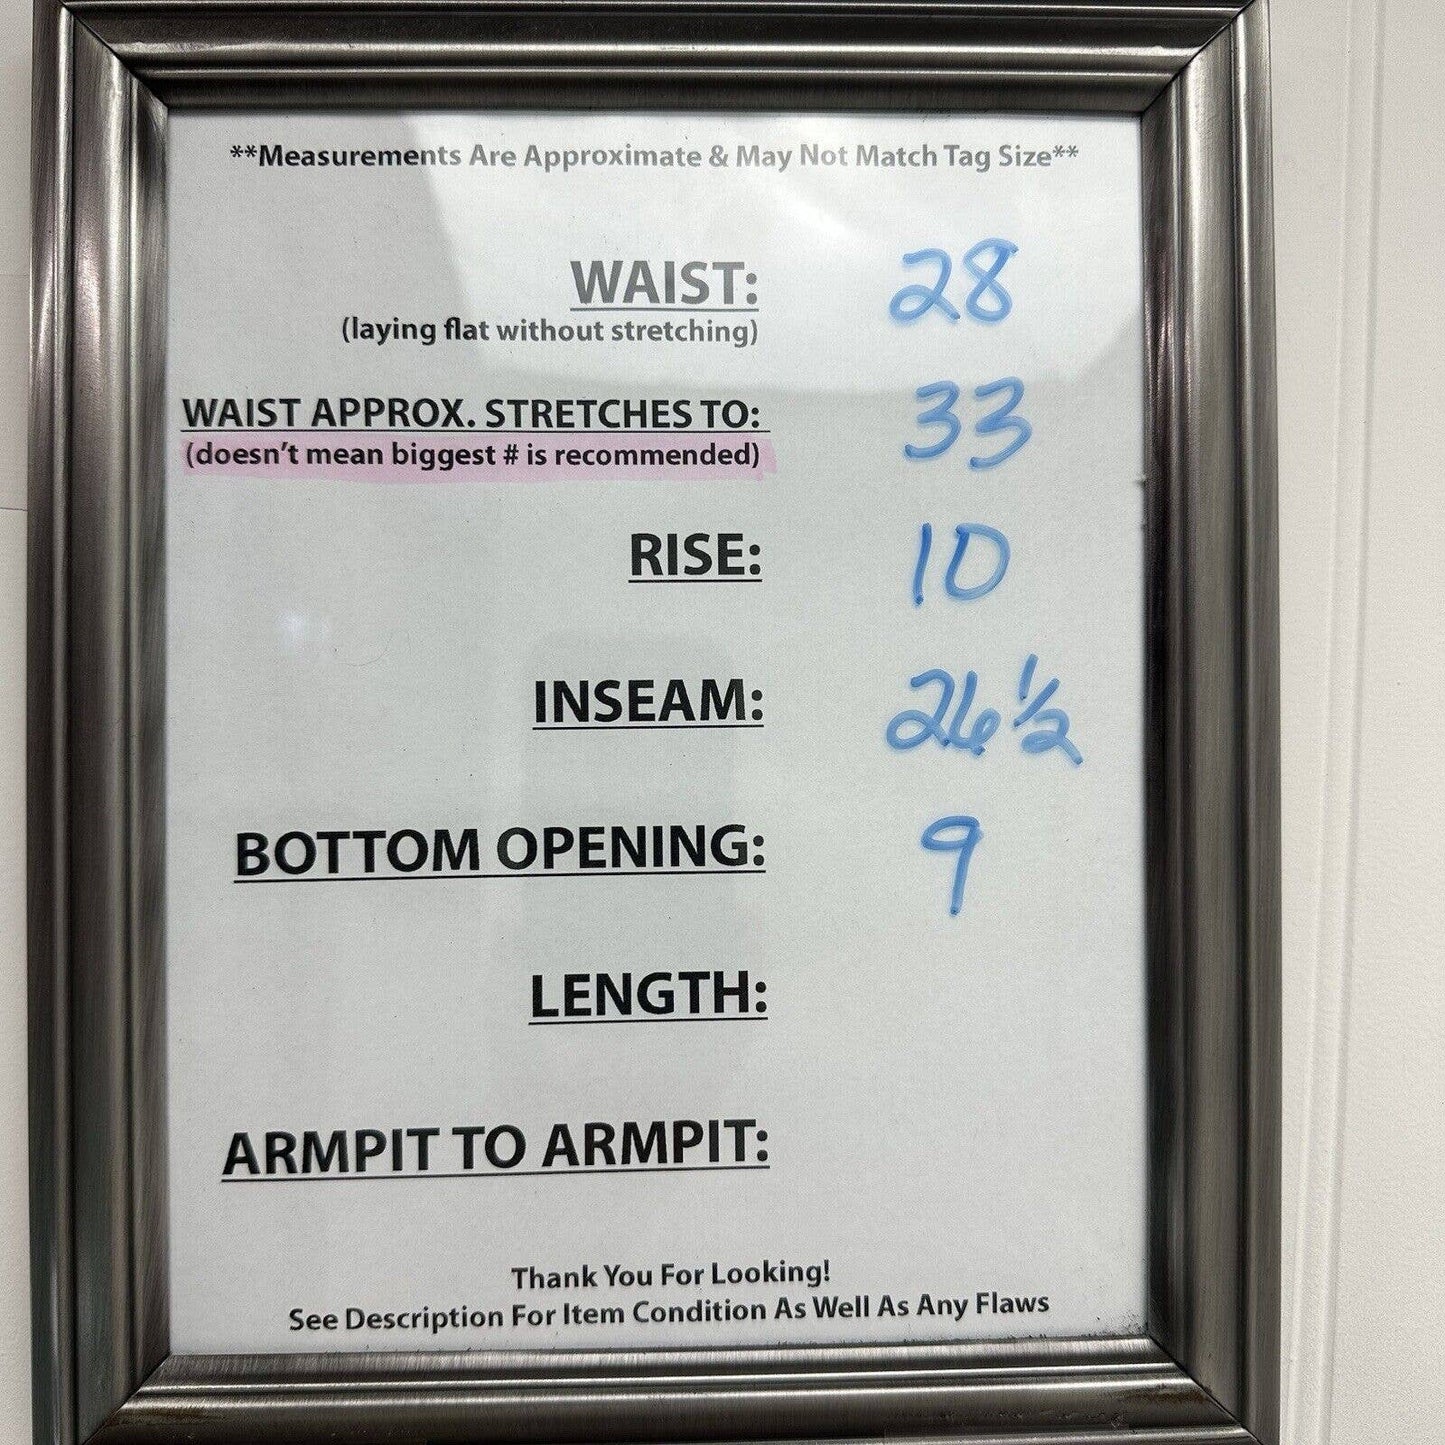 **Measurements Are Approximate & May Not Match Tag Size**
WAIST: 28
(laying flat without stretching)
WAIST APPROX. STRETCHES TO: 33
(doesn't mean biggest # is recommended)
RISE: 10
INSEAM: 26 1/2
BOTTOM OPENING: 9
LENGTH:
ARMPIT TO ARMPIT:
Thank You For Looking!
See Description For Item Condition As Well As Any Flaws